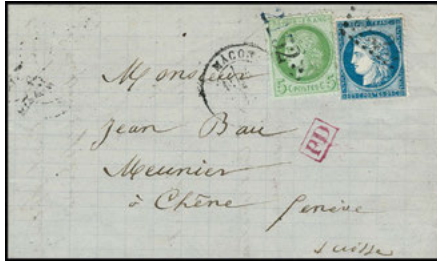 MACON
5 CENTIMES 5
Monsieur
Jean Bau
PD
Meunier
à Chêne Genève
Suisse